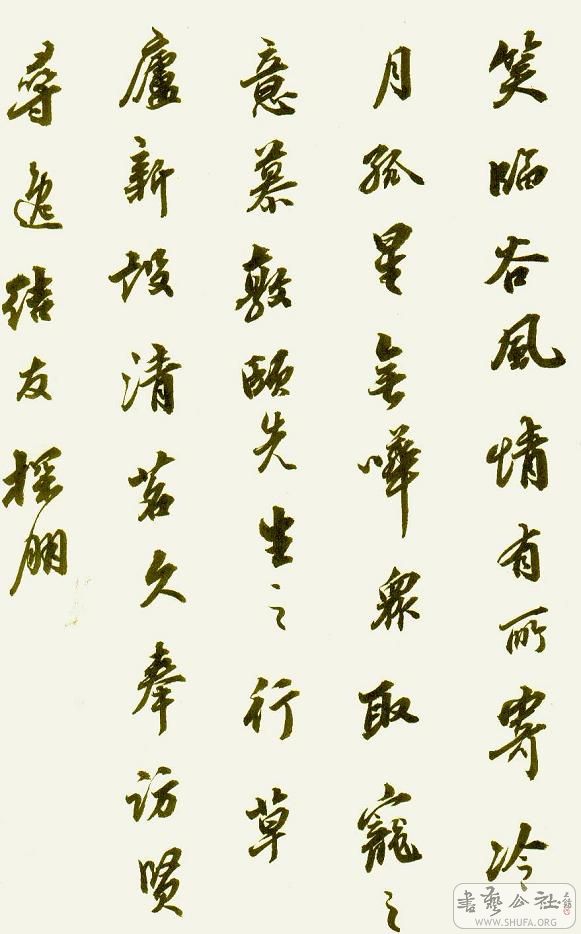 笑临谷風情有所寄冷
月孤星無嘩衆取寵之
意慕敦頤先生之行草
廬新設清茗久奉访賢
尋逸结友探朋
書藝公社
WWW.SHUFA.ORG